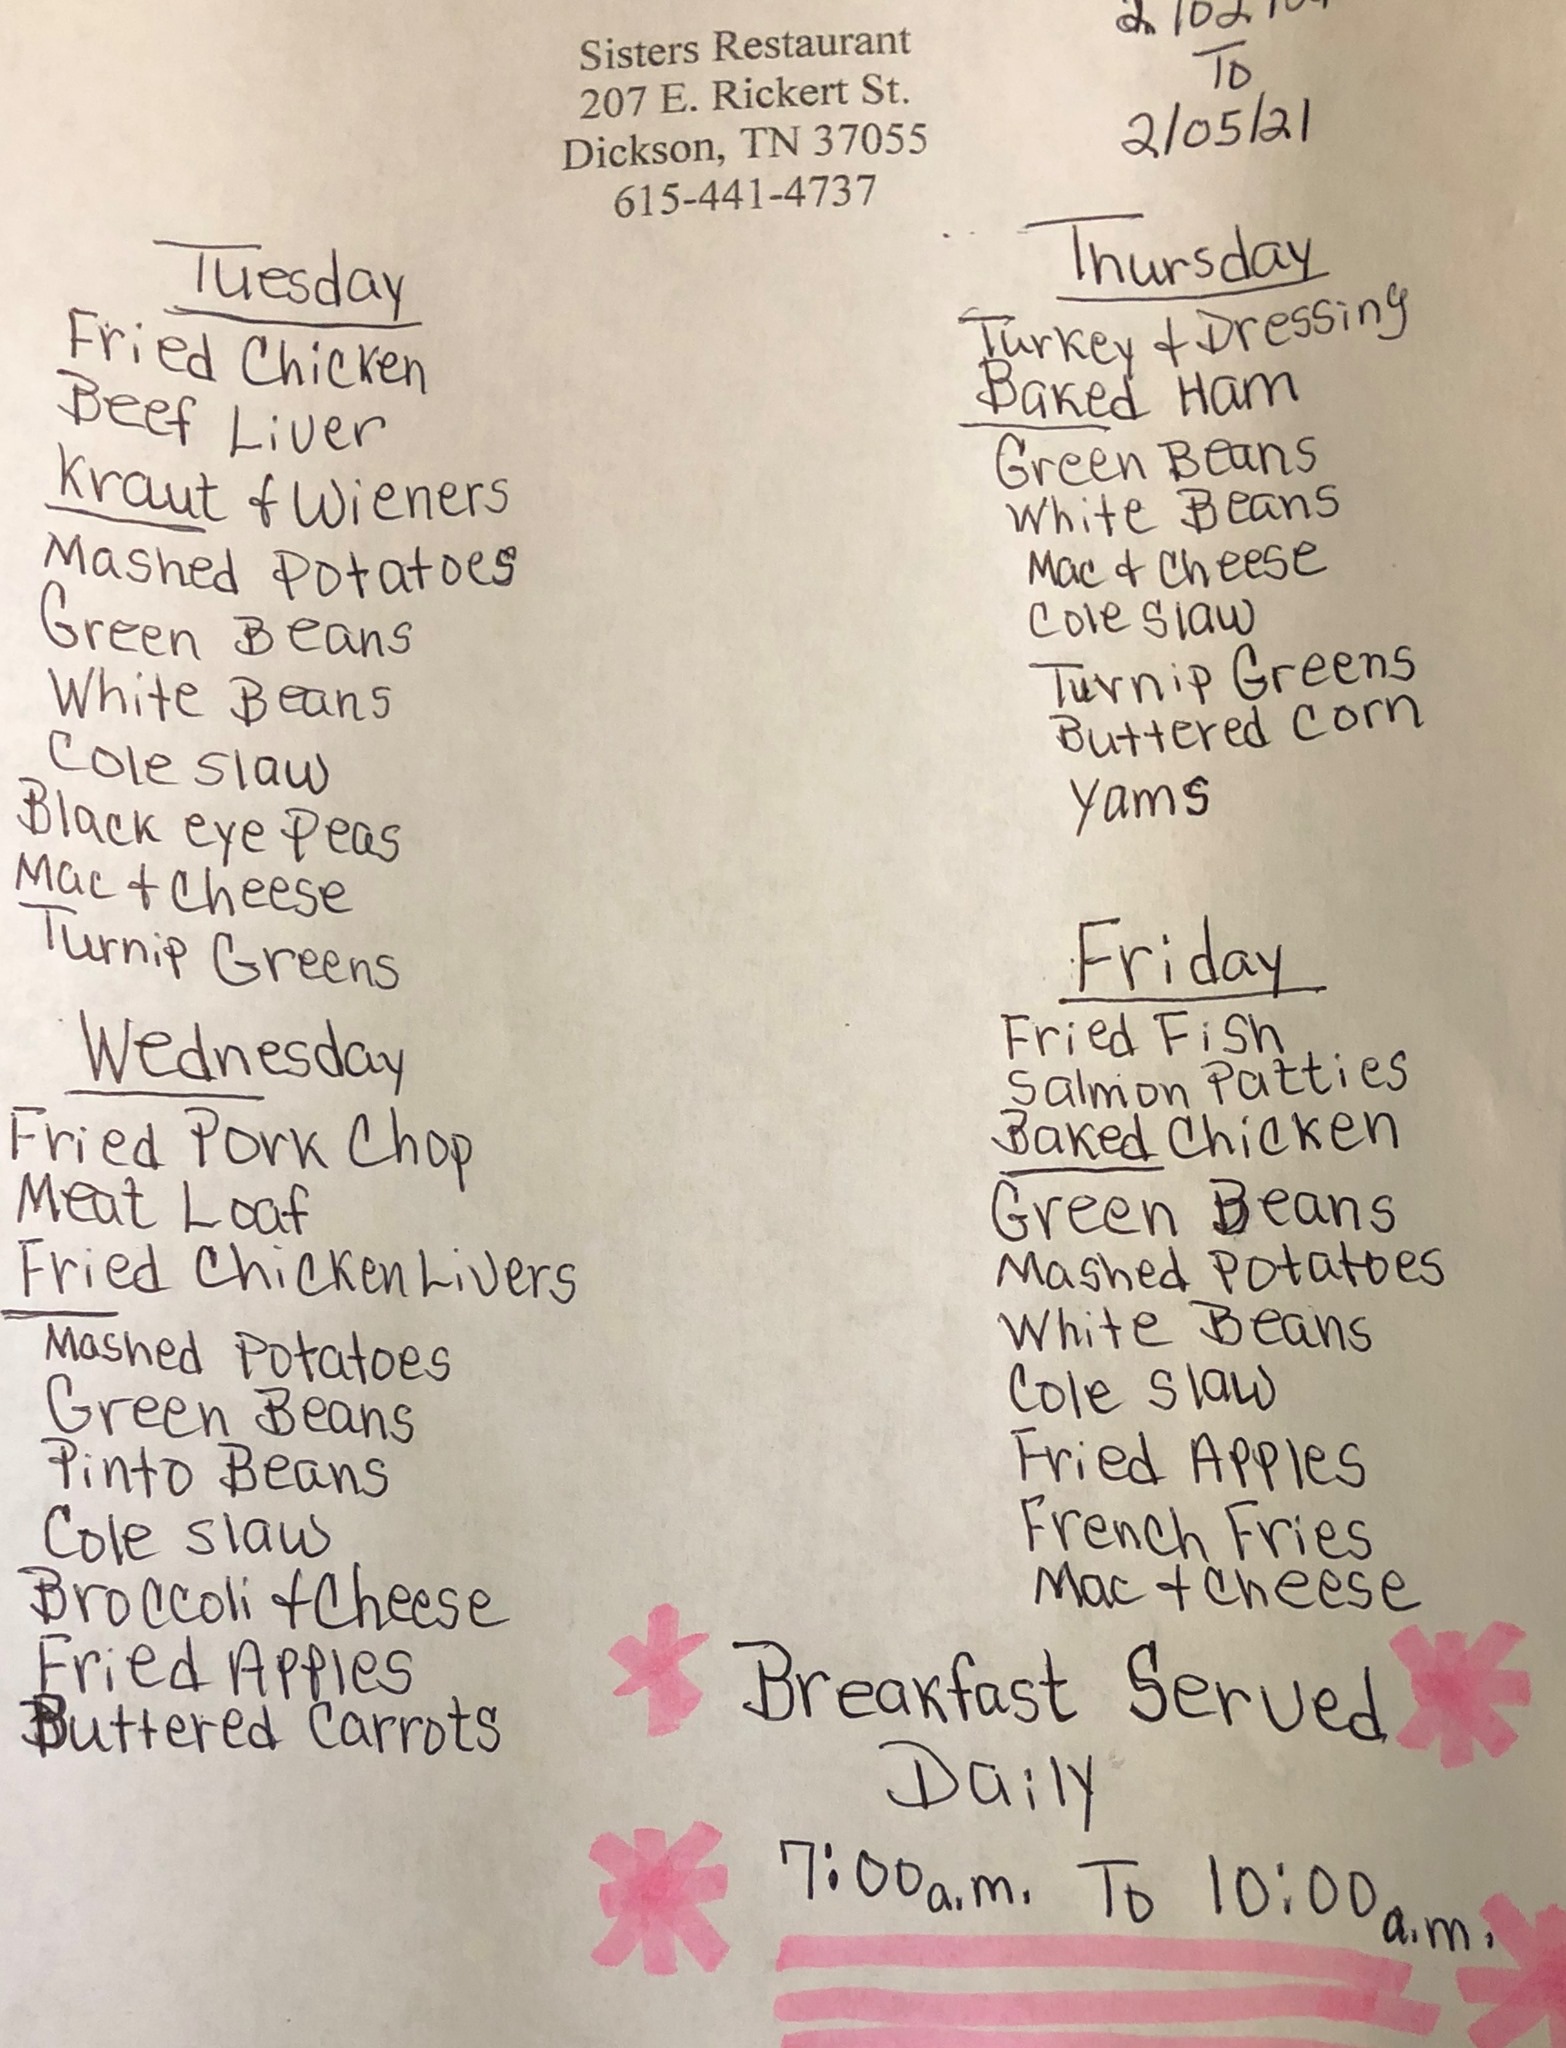 Sisters Restaurant
207 E. Rickert St.
Dickson, TN 37055
615-441-4737
To
2/05/21
Tuesday
Fried Chicken
Beef Liver
Kraut & Wieners
Mashed Potatoes
Green Beans
White Beans
Cole slaw
Black eye Peas
Mac & Cheese
Turnip Greens
Wednesday
Fried Pork Chop
Meat Loaf
Fried Chicken Livers
Mashed Potatoes
Green Beans
Pinto Beans
Cole slaw
Broccoli & Cheese
Fried Apples
Buttered Carrots
Thursday
Turkey & Dressing
Baked Ham
Green Beans
White Beans
Mac & Cheese
Cole slaw
Turnip Greens
Buttered Corn
Yams
Friday
Fried Fish
Salmon Patties
Baked Chicken
Green Beans
Mashed Potatoes
White Beans
Cole slaw
Fried Apples
French Fries
Mac & Cheese
Breakfast Served
Daily
7:00a.m. To 10:00a.m.